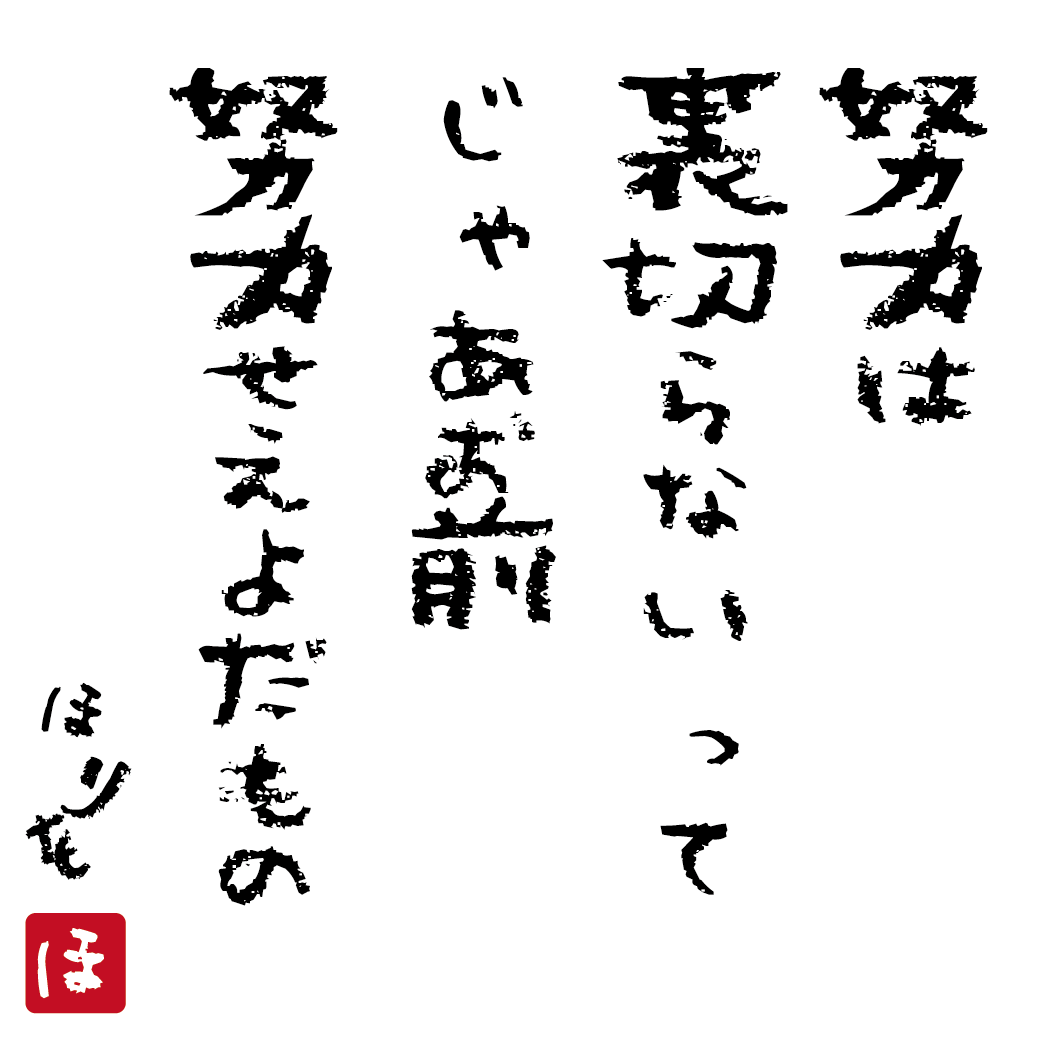 努力は
裏切らないって
じゃあお前
努力せえよだもの
ほ